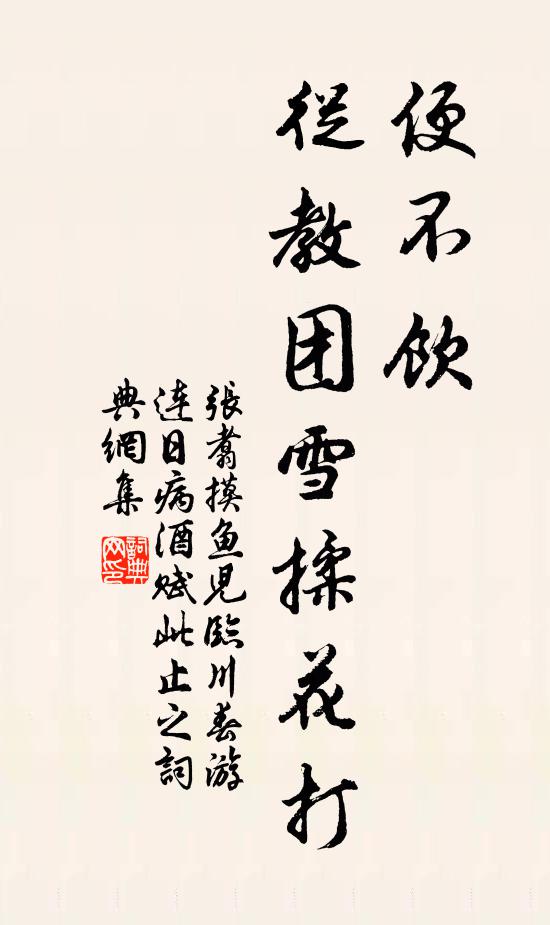 便不饮
從教团雪揉花打
張翥摸魚児臨川春游
連日病酒赋此止之詞
典網集
詞典网印